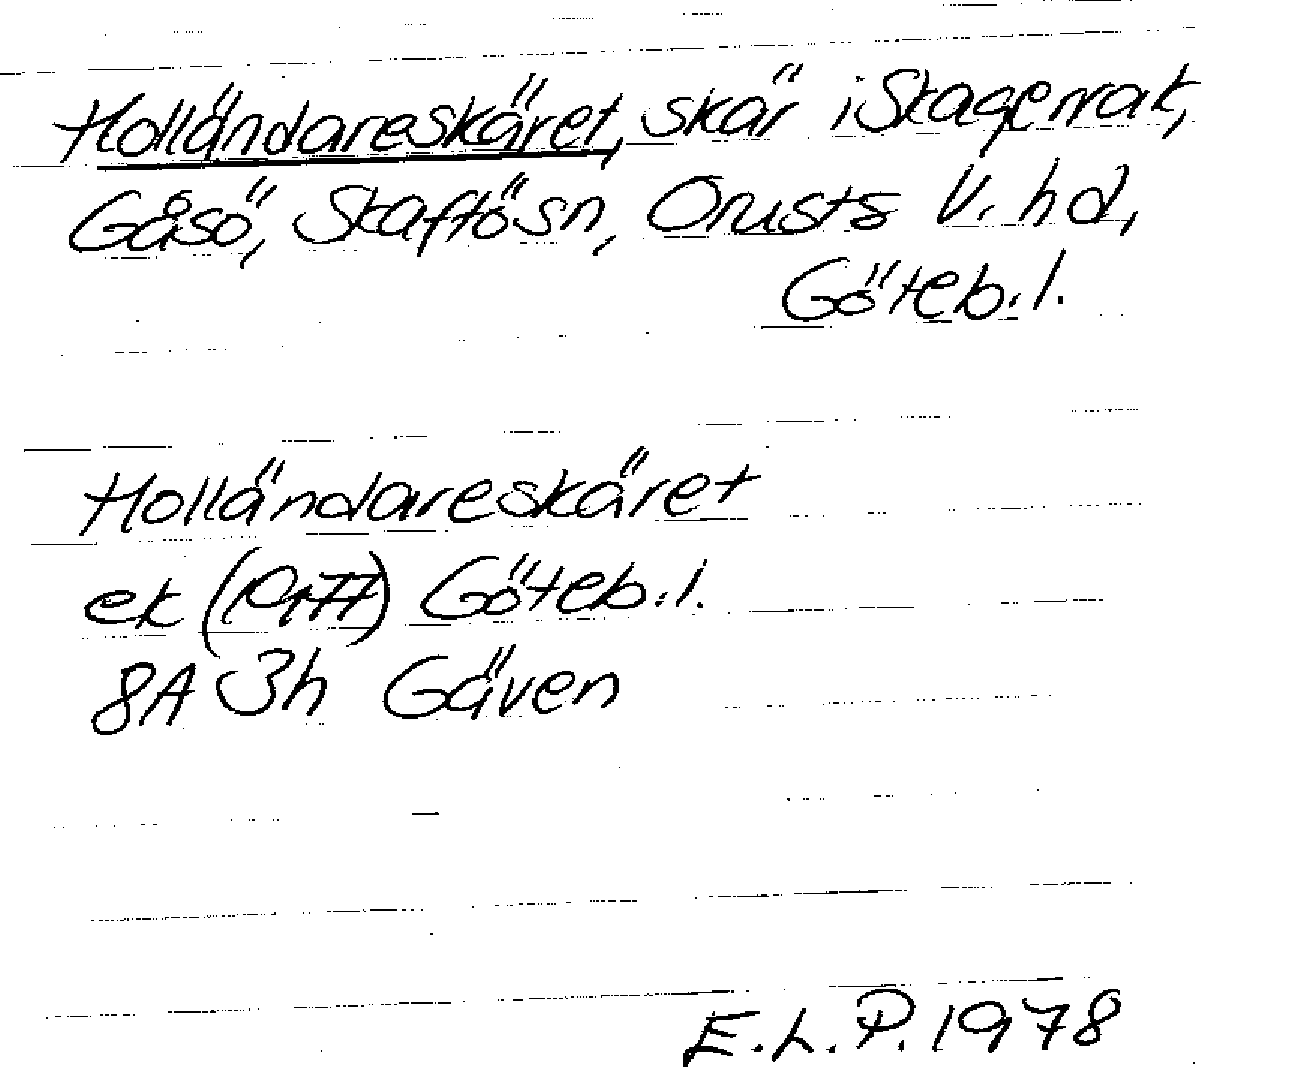 Holländareskäret, skär i Skagerrak,
Gåsö, Skaftösn, Orusts V. hd,
Göteb.l.
Holländareskäret
ek (Orff) Göteb.l.
8A 3h Gäven
E.L.P. 1978